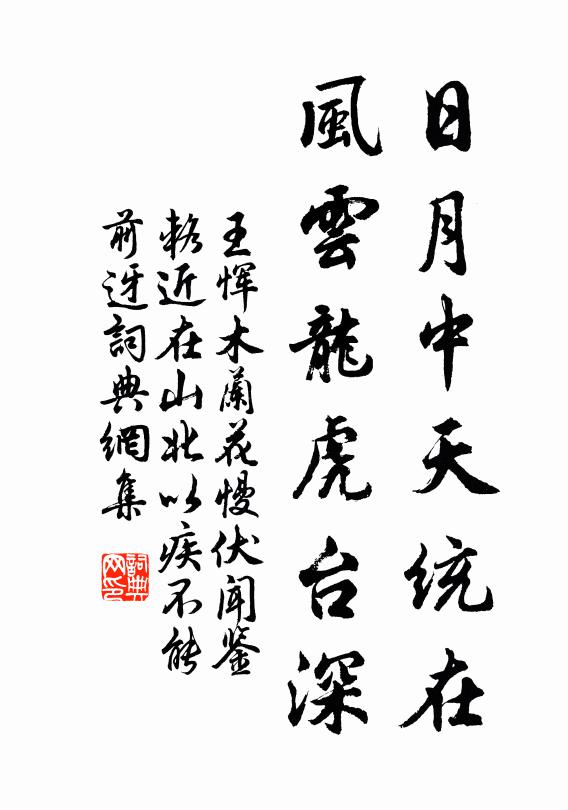 日月中天統在
風雲龍虎台深
王惲木蘭花慢伏聞鑒
輅近在山北以疾不能
前迓詞典網集
詞典网印